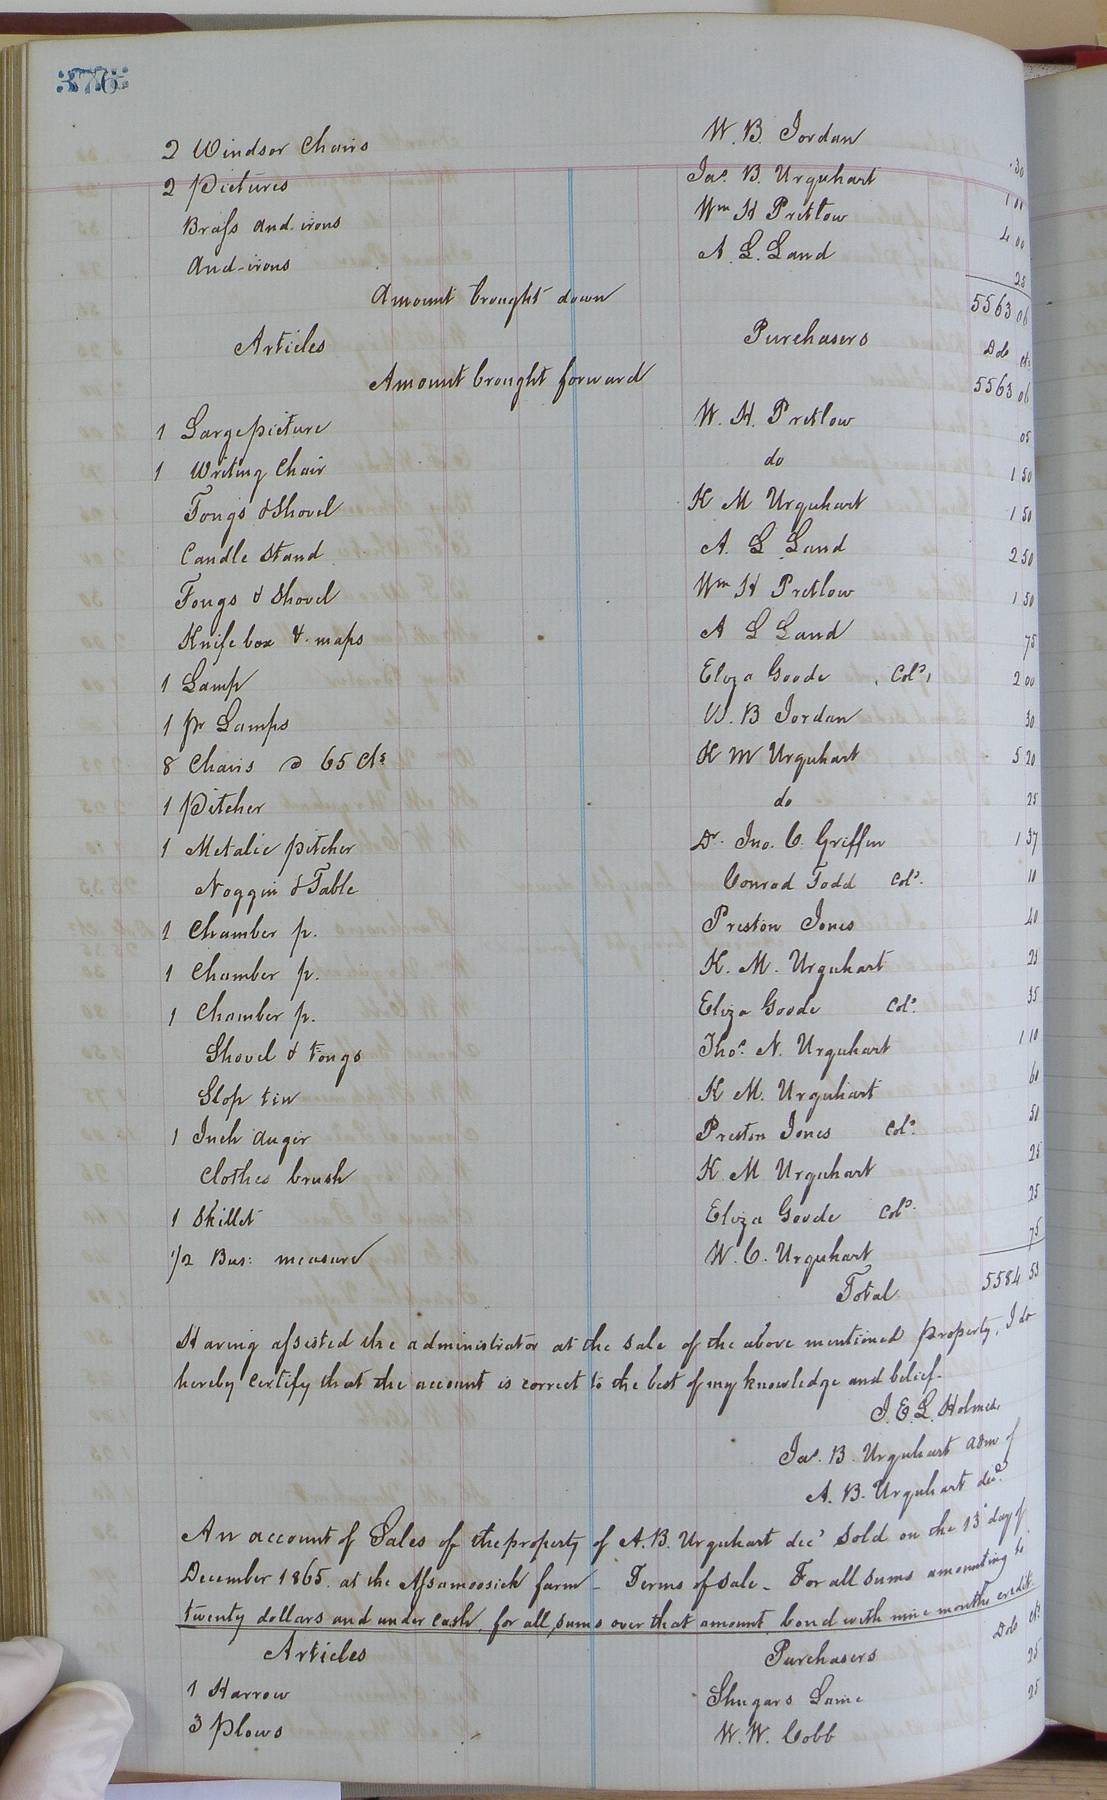 376
2 Windsor Chairs W. B. Jordan 30
2 Pictures Jas. B. Urquhart 1 00
Brass and-irons Wm H Pretlow 4 00
And-irons A. L. Land 25
Amount brought down 5563 06
Articles Purchasers Dols cts
Amount brought forward 5563 06
1 Large picture W. H. Pretlow 05
1 Writing Chair do 1 50
Tongs & Shovel K M Urquhart 1 50
Candle Stand A. L Land 2 50
Tongs & Shovel Wm H Pretlow 1 50
Knife box & maps A L Land 75
1 Lamp Eliza Goode Cold 2 00
1 pr Lamps W. B Jordan 30
8 Chairs @ 65 cts K M Urquhart 5 20
1 Pitcher do 25
1 Metalic pitcher Dr. Jno. C. Griffin 1 37
Noggin & Table Conrad Todd Cold. 10
1 Chamber p. Preston Jones 40
1 Chamber p. K. M. Urquhart 25
1 Chamber p. Eliza Goode Cold. 35
Shovel & tongs Thos. N. Urquhart 1 10
Slop tin K M. Urquhart 60
1 Inch auger Preston Jones Cold. 50
Clothes brush K M Urquhart 25
1 Skillet Eliza Goode Cold. 25
1/2 Bus: measure W. C. Urquhart 75
Total 5584 53
Having assisted the administrator at the sale of the above mentioned property, I do
hereby certify that the account is correct to the best of my knowledge and belief.
J. E. L. Holmes
Jas. B. Urquhart adm of
A. B. Urquhart decd
An account of Sales of the property of A. B. Urquhart decd Sold on the 13th day of
December 1865. at the Assamoosick farm - Terms of Sale - For all sums amounting to
twenty dollars and under cash, for all sums over that amount bond with nine months credit
Articles Purchasers Dols cts
1 Harrow Shugars Lame 25
3 Plows W. W. Cobb 25